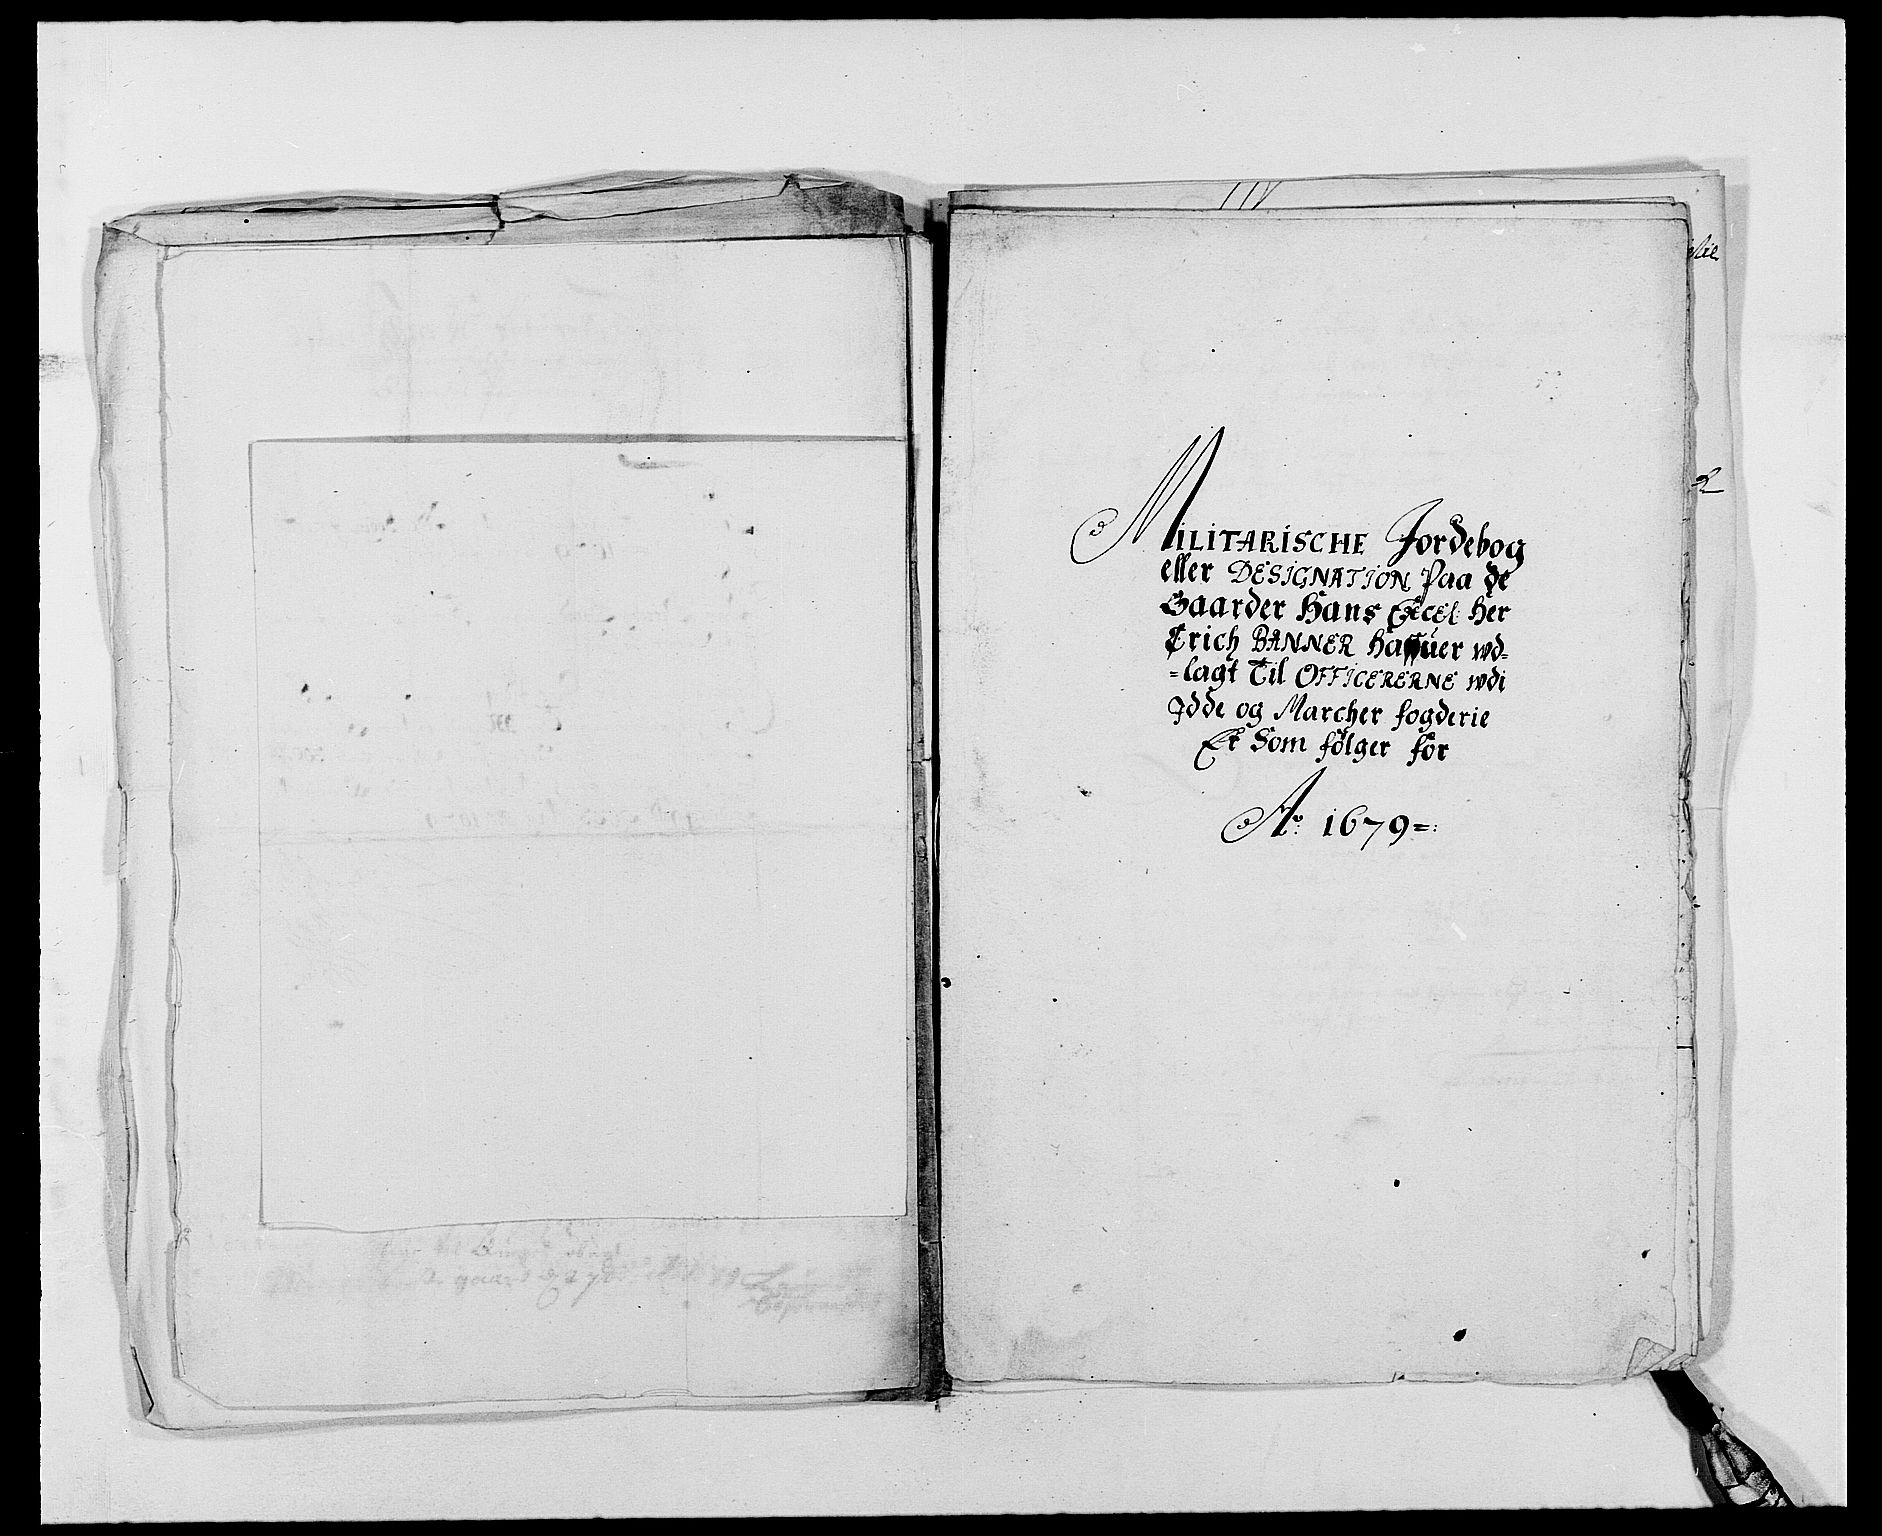 MILITARISCHE Jordebog
eller DESIGNATION Paa de
Gaarder Hans Excel: Her
Erich BANNER Hafuer wd=
=lagt Til OFFICERERNE wdi
Idde og Marcher fogderie
Er Som fölger for
Ao: 1679=: